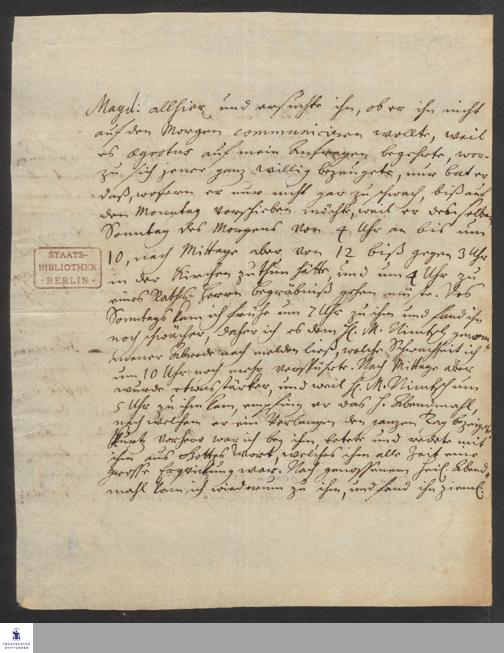 Magd: allhier und ersuchte ihn, ob er ihn nicht
auf den Morgen communiciren wollte, weil
es aegrotus auf mein Anfragen begehrte, wor-
zu sich jener ganz willig bezeugete, nur bat er
daß, wofern er nur nicht gar zu schwach, biß auf
den Montag verschieben möchte, weil er desselben
Sonntag des Morgens von 4 Uhr an bis um
10, nach Mittage aber von 12 biß gegen 3 Uhr
in der Kirchen zu thun hätte, und um 4 Uhr zu
eines Raths Herrn Begräbniß gehen müste. Des
Sonntags kam ich frühe um 7 Uhr zu ihm und fand ihn
noch schwächer, daher ich es dem H. M. Nimtsch genom-
mener Abrede nach melden ließ, welche Schwachheit ich
um 10 Uhr noch mehr verspührte. Nach Mittage aber
wurde etwas stärker, und weil H. M. Nimtsch um
5 Uhr zu ihm kam, empfing er das H. Abendmahl,
nach welchem er ein Verlangen den ganzen Tag bezeugte
Kurtz vorher war ich bey ihm, betete und redete mit
ihm aus Gottes Wort, welches ihm alle Zeit eine
grosse Erquickung war. Nach genossenem Heil. Abend-
mahl kam ich wiederum zu ihm, und fand ihn zieml:
STAATS-
BIBLIOTHEK
BERLIN
FRANCKESCHE
STIFTUNGEN